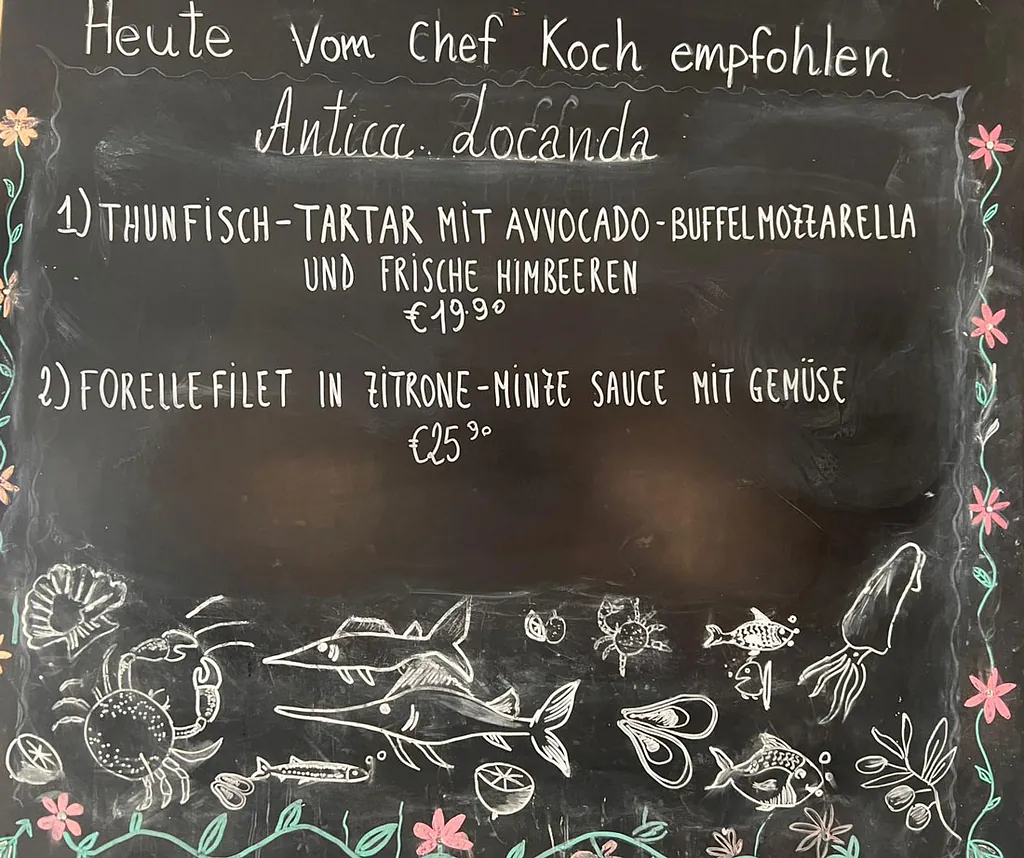 Heute Vom Chef Koch empfohlen
Antica Locanda
1) THUNFISCH-TARTAR MIT AVVOCADO-BUFFELMOZZARELLA
UND FRISCHE HIMBEEREN
€19.90
2) FORELLEFILET IN ZITRONE-MINZE SAUCE MIT GEMÜSE
€25 90